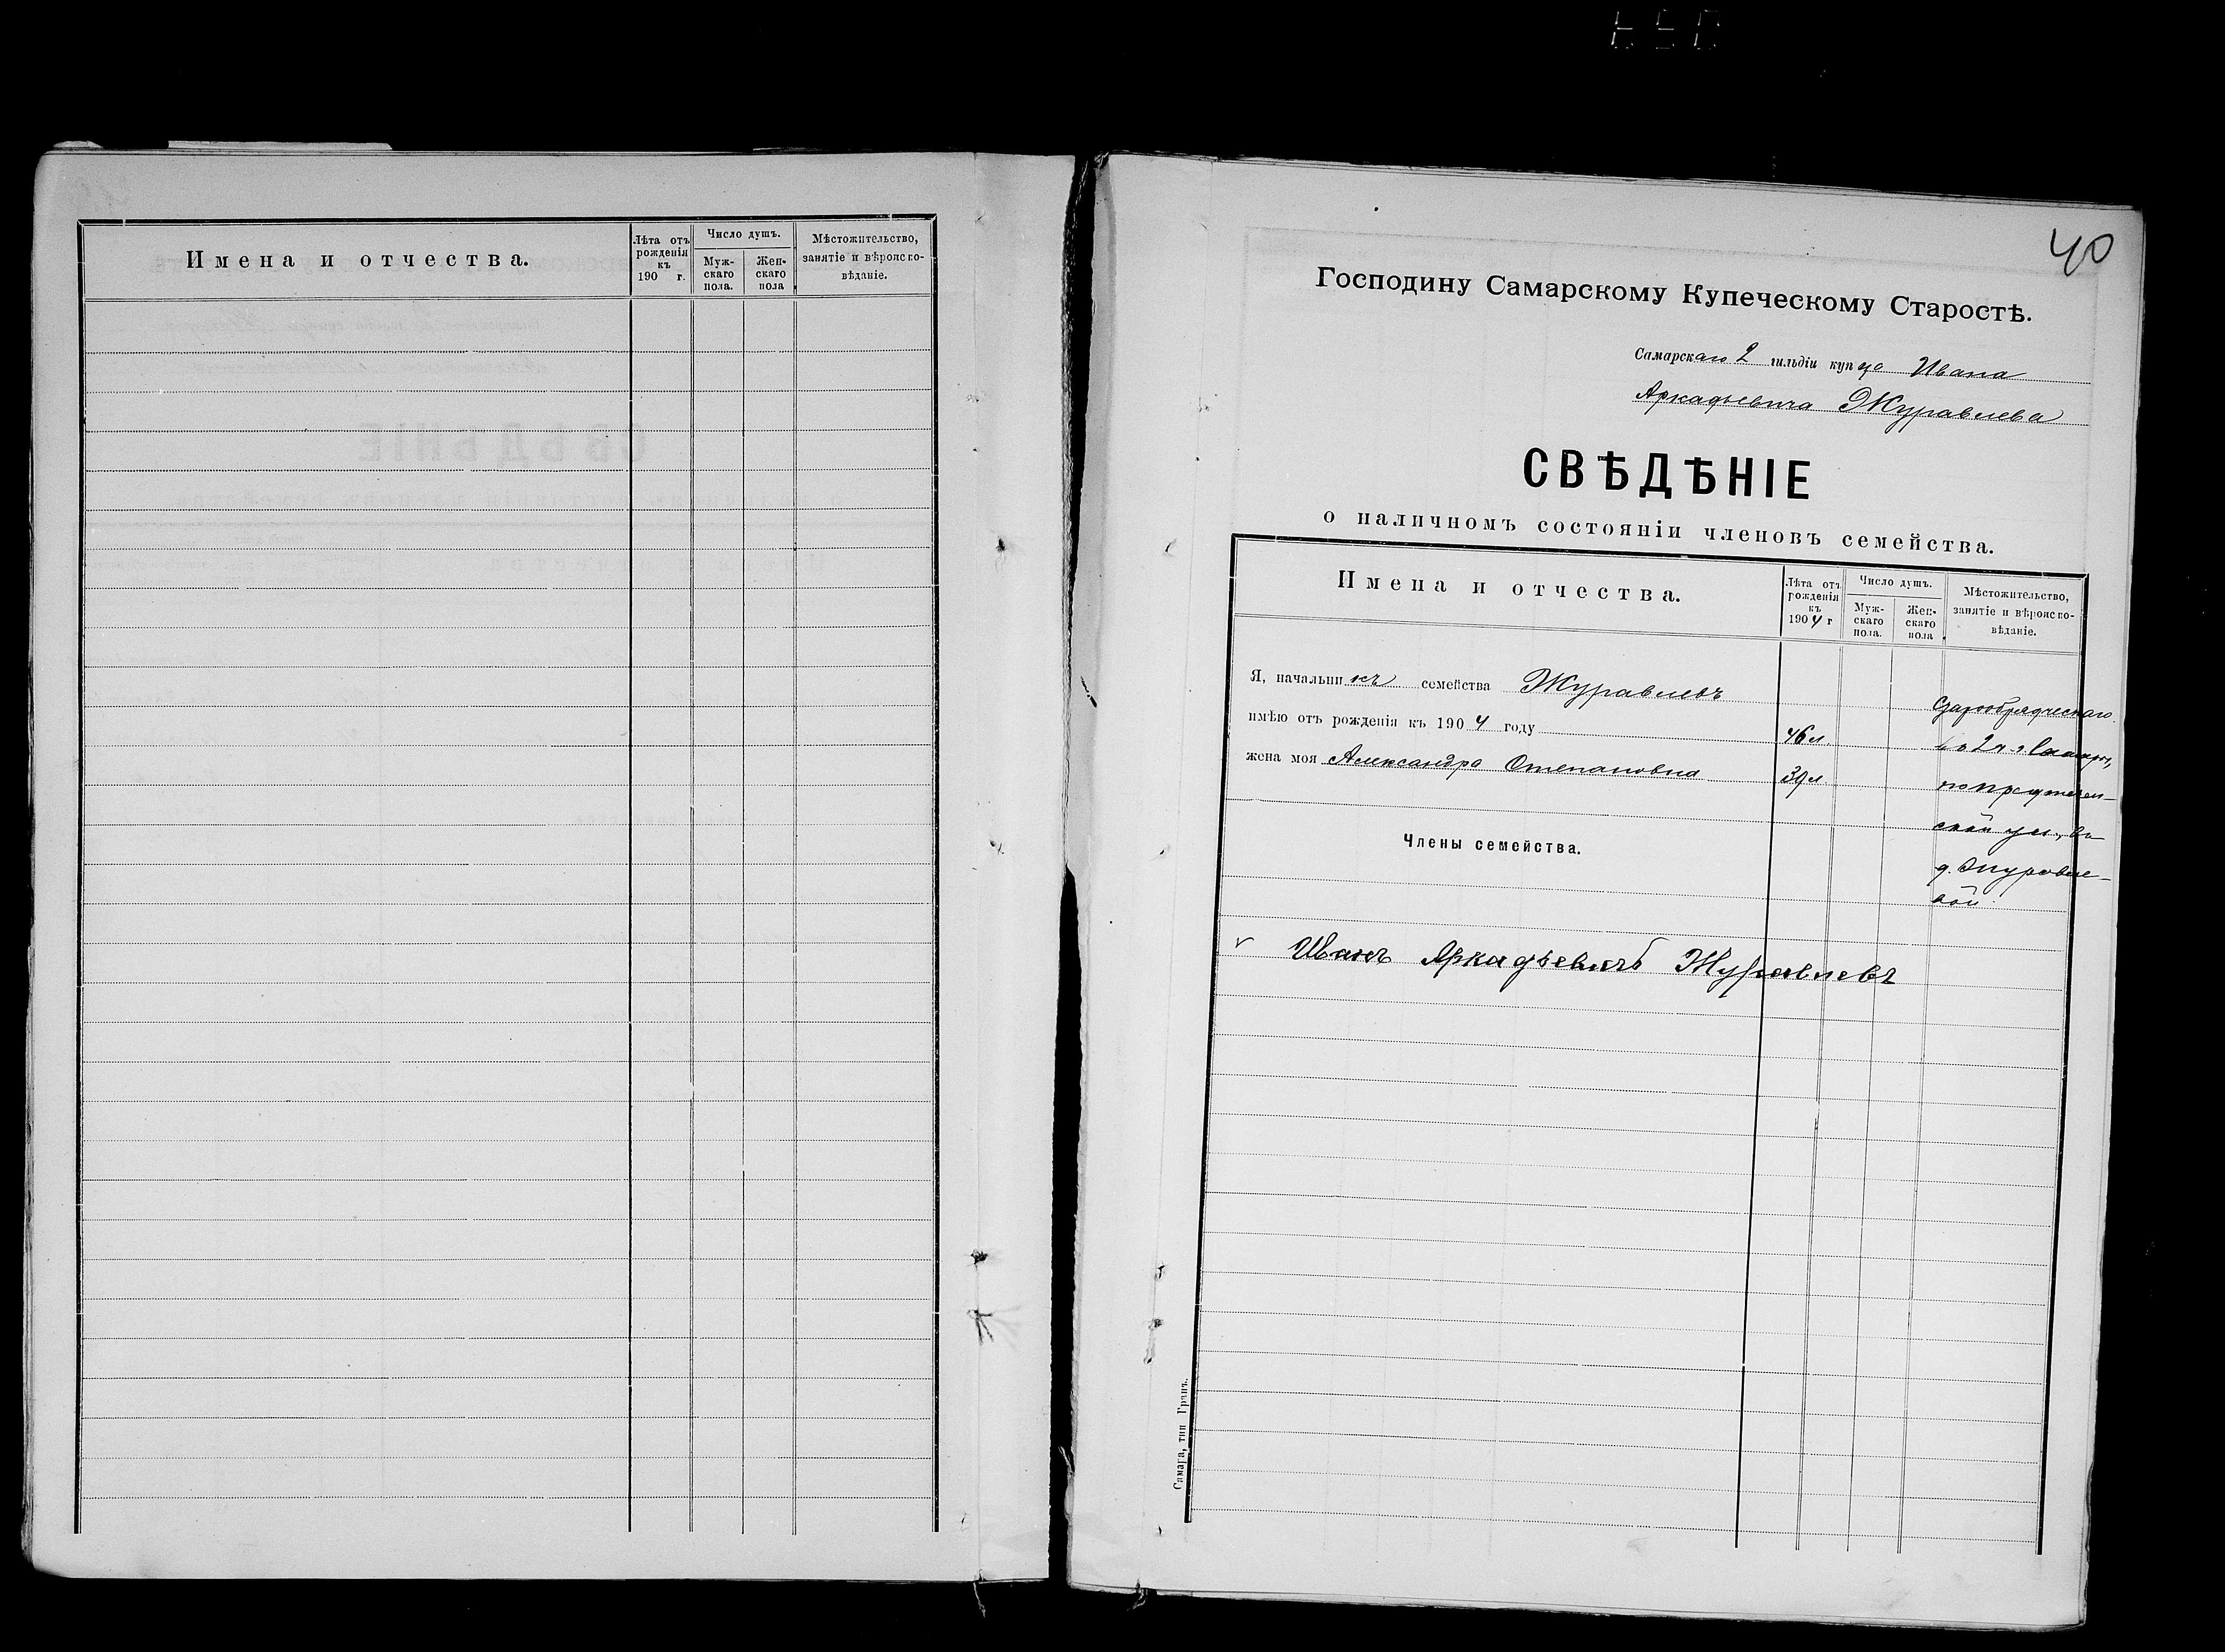 Имена и отчества.
Лѣта отъ рожденія къ 190 г.
Число душъ.
Муж-скаго пола.
Жен-скаго пола
Мѣстожительство, занятіе и вѣроиспо-вѣданіе.
40
Господину Самарскому Купеческому Старостѣ.
Самарскаго 2 гильдіи купца Ивана
Аркадьевича Журавлева
СВѢДѢНІЕ
о наличномъ состояніи членовъ семейства.
Имена и отчества.
Лѣта отъ рожденія къ 1904 г
Число душъ.
Муж-скаго пола.
Жен-скаго пола
Мѣстожительство, занятіе и вѣроиспо-вѣданіе.
Я, начальникъ семейства Журавлевъ
имѣю отъ рожденія къ 1904 году 46 л.
жена моя Александра Степановна 39 л.
Старобрядческаго
по предтечен-
ской ул., въ
д.
Члены семейства.
Иванъ Аркадьевичъ Журавлевъ
Самара, тип Гранъ.